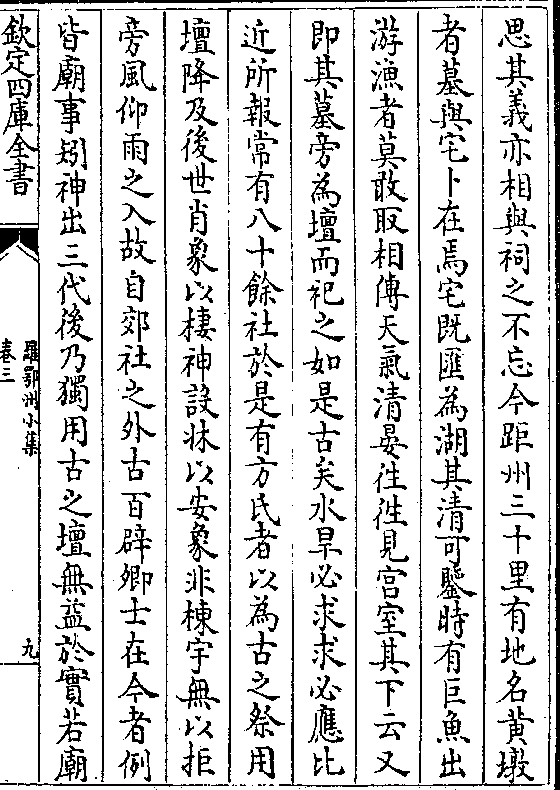 思其義亦相與祠之不忘今距州三十里有地名黃墩
者墓與宅卜在焉宅既匯為湖其清可鑒時有巨魚出
游漁者莫敢取相傳天氣清晏往徃見宫室其下云又
即其墓旁為壇而祀之如是古矣水旱必求求必應比
近所報常有八十餘社於是有方氏者以為古之祭用
壇降及後世肖象以棲神設牀以安象非棟宇無以拒
旁風仰雨之入故自郊社之外古百辟卿士在今者例
皆廟事矧神出三代後乃獨用古之壇無益於實若廟
欽定四庫全書
羅鄂州小集
卷三
九